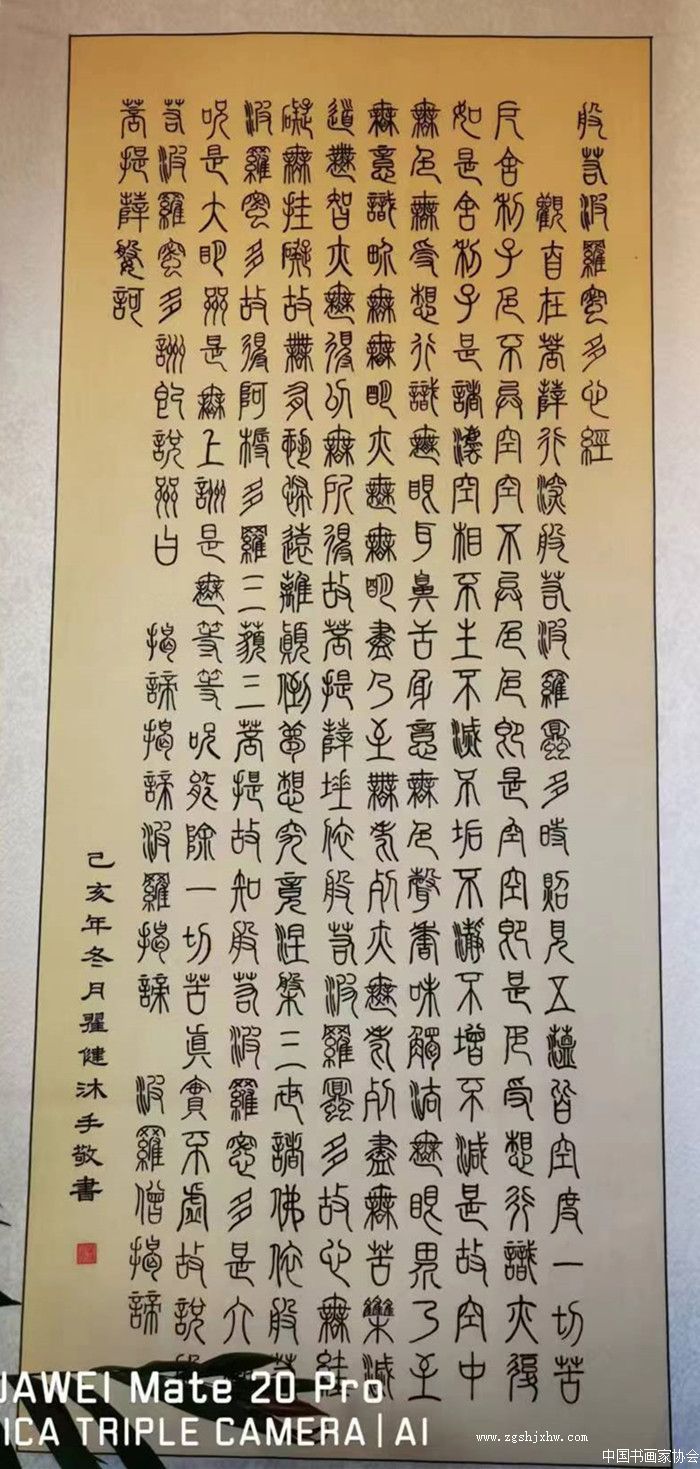 般若波羅蜜多心經
觀自在菩薩行深般若波羅蜜多時照見五蘊皆空度一切苦
厄舍利子色不異空空不異色色即是空空即是色受想行識亦復
如是舍利子是諸法空相不生不滅不垢不淨不增不減是故空中
無色無受想行識無眼耳鼻舌身意無色聲香味觸法無眼界乃至
無意識界無無明亦無無明盡乃至無老死亦無老死盡無苦集滅
道無智亦無得以無所得故菩提薩埵依般若波羅蜜多故心無絓
礙無挂礙故無有恐怖遠離顛倒夢想究竟涅槃三世諸佛依般若
波羅蜜多故得阿耨多羅三藐三菩提故知般若波羅蜜多是大
咒是大明咒是無上詶是無等等咒能除一切苦真實不虛故說般
若波羅蜜多詶即說咒曰 揭諦揭諦波羅揭諦 波羅僧揭諦
菩提薩婆訶
己亥年冬月翟健沐手敬書
JAWEI Mate 20 Pro
ICA TRIPLE CAMERA | AI
www.zgshjxhw.com
中国书画家协会